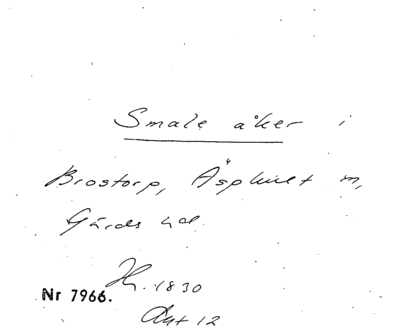 Smale åker i
Brostorp, Äsphult m,
Gärds hd.
H. 1830
Nr 7966.
Akt 12